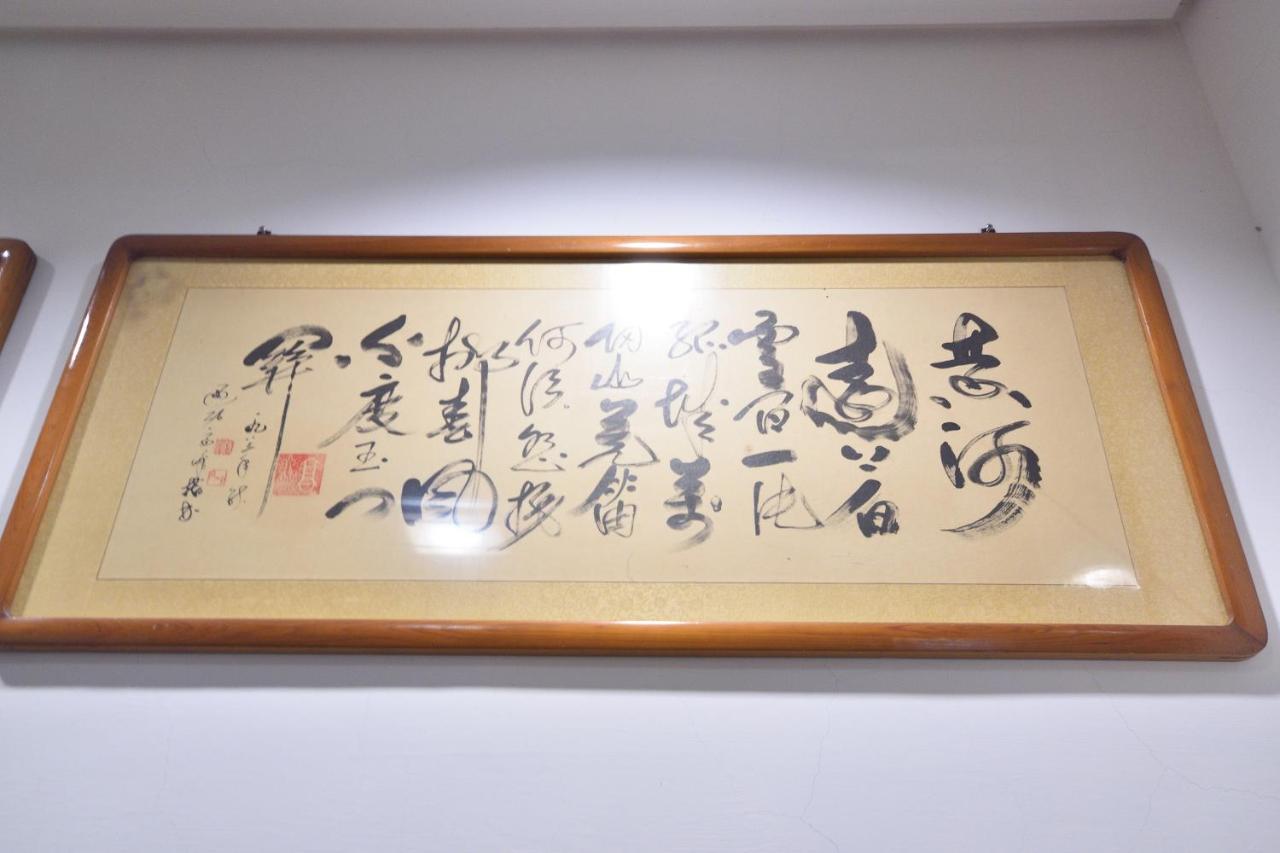 黄河
遠上白
雲間一片
孤城萬
仞山羌笛
何須怨楊
柳春風
不度玉門
關
一九八三年秋